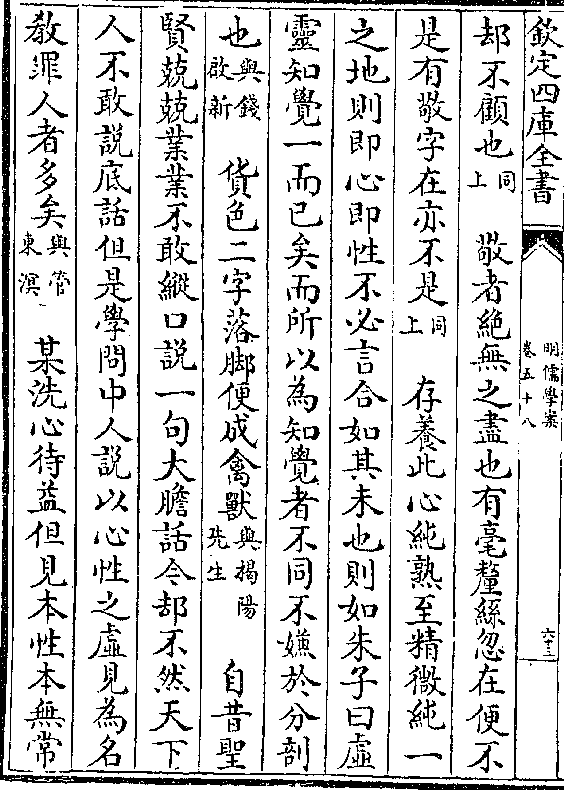 欽定四庫全書
明儒學案
卷五十八
六三
却不顧也同上　敬者絶無之盡也有毫釐絲忽在便不
是有敬字在亦不是同上　存養此心純熟至精微純一
之地則即心即性不必言合如其未也則如朱子曰虛
靈知覺一而已矣而所以為知覺者不同不嫌於分剖
也與錢啟新　貨色二字落脚便成禽獸與揭陽先生　自昔聖
賢兢兢業業不敢縱口説一句大膽話今却不然天下
人不敢説底話但是學問中人説以心性之虛見為名
教罪人者多矣與管東溟　某洗心待益但見本性本無常